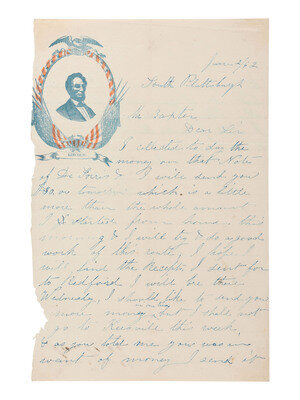 June 2/62
South Plattsburgh
Mr Baxter
Dear Sir
LINCOLN.
I collected to day the
money on that Note
of De Forris & I will send you
$30.00 tomorrow which is a little
more than the whole amount
I started from home this
morning & I will try & do a good
work of this route, I hope
will send the Receipts I sent for
to Redford I will be there
Wednesday, I should like to send you
more money but I shall not
go to Keesville this week,
& as you told me you was in
want of money I send it